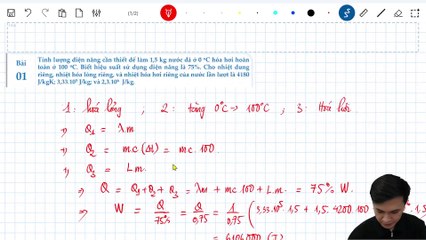 (1/2)
Bài
01
Tính lượng điện năng cần thiết để làm 1,5 kg nước đá ở 0 °C hóa hơi hoàn
toàn ở 100 °C. Biết hiệu suất sử dụng điện năng là 75%. Cho nhiệt dung
riêng, nhiệt hóa lỏng riêng, và nhiệt hóa hơi riêng của nước lần lượt là 4180
J/kgK; 3,33.10⁵ J/kg; và 2,3.10⁶ J/kg.
1: hoá lỏng , 2: tăng 0°C → 100°C , 3: Hoá hơi.
⇒ Q₁ = λ.m
⇒ Q₂ = m.c (Δt) = mc.100.
⇒ Q₃ = L.m.
⇒ Q = Q₁+Q₂+Q₃ = λm + mc.100 + L.m. = 75% W.
⇒ W = Q/75% = Q/0,75 = 1/0,75 (3,33.10⁵.1,5 + 1,5.4200.100
= 6106000 (J)